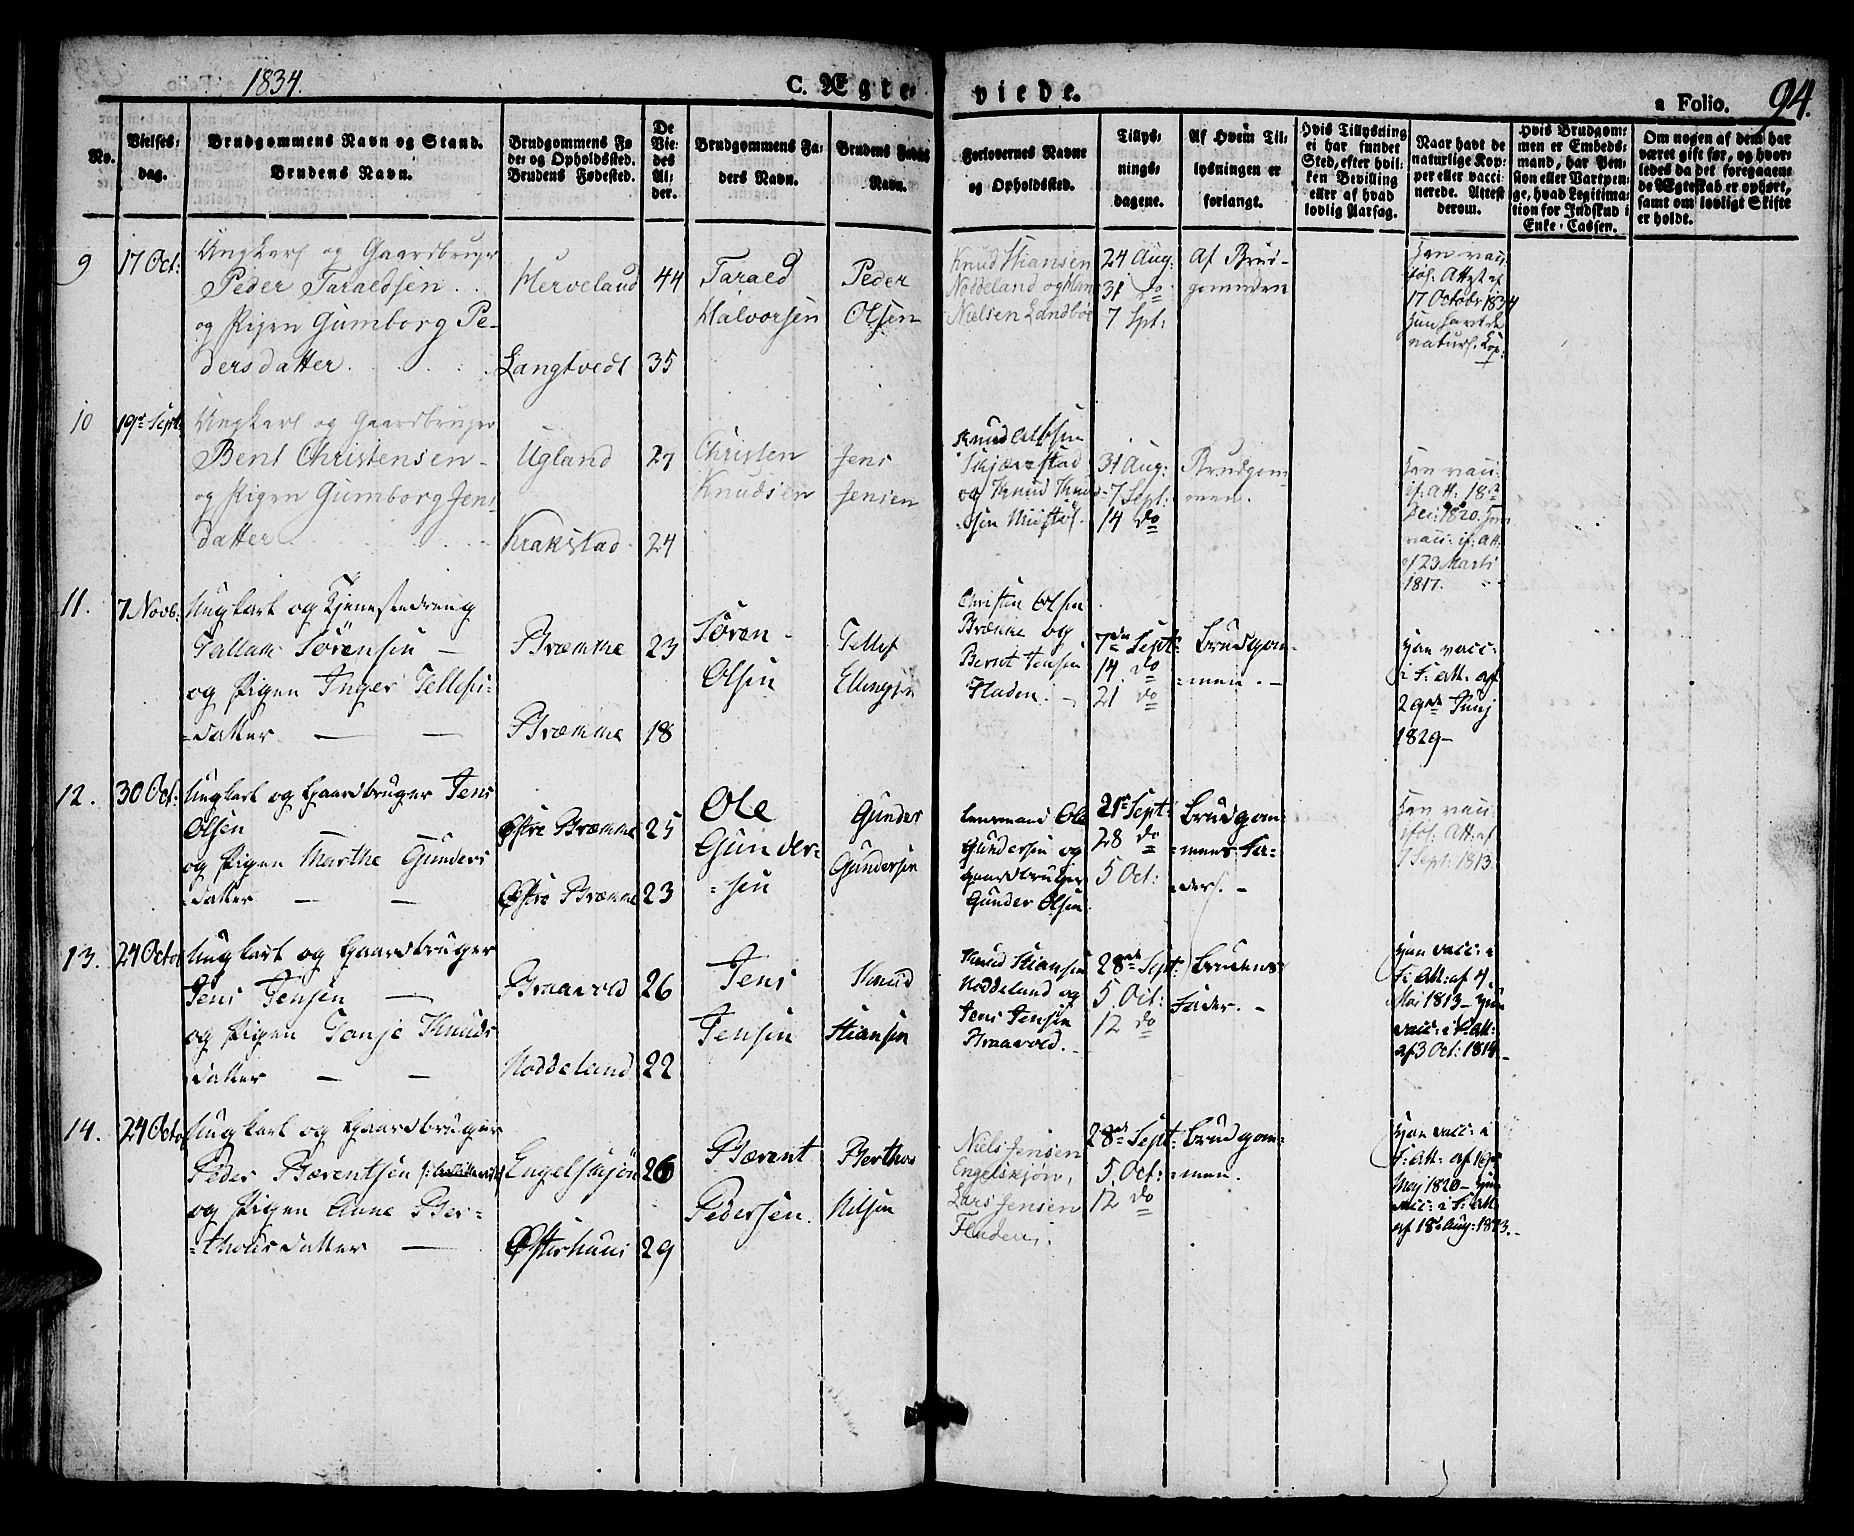 1834.
C. Ægte-
viede.
a Folio. 94.
No.
Vielses-
dag.
Brudgommens Navn og Stand.
Brudens Navn.
Brudgommens Fø
de- og Opholdssted.
Brudens Fødested.
De
Vie-
des
Al-
der.
Brudgommens Fa-
ders Navn.
Brudens Faders
Navn.
Forlovernes Navne
og Opholdssted.
Tillys-
nings-
dagene.
Af Hvem Til-
lysningen er
forlangt.
Hvis Tillysning
ei har fundet
Sted, efter hvil-
ken Bevilling
eller af hvad
lovlig Aarsag.
Naar havt de
naturlige Kop-
per eller vacci-
nerede. Attest
derom.
Hvis Brudgom-
men er Embeds-
mand, har Pen-
sion eller Vartpen-
ge, hvad Legitima-
tion for Indskud i
Enke-Cassen.
Om nogen af dem har
været gift før, og hvor-
ledes da det foregaaen-
de Ægteskab er ophørt,
samt om lovligt Skifte
er holdt.
9
17 Oct:
Ungkarl og Gaardbruger
Peder Taraldsen
og Pigen Gumborg Pe-
dersdatter
Herveland
Langtvedt
44
35
Tarald
Halvorsen
Peder
Olsen
Knud Stiansen
Noddeland og Han
Nielsen Landbøe
24 Aug:
31 do
7 Spt:
Af Brud-
gommen
Han vac:
ifol. Attest af
17 Octobr 1834
Hun havt de
naturl. Kop:
10
19de Sept:
Ungkarl og Gaardbruger
Bent Christensen
og Pigen Gumborg Jens
datter
Ugland
Krakstad
27
24
Christen
Knudsen
Jens
Jensen
og Knud Knud-
31 Aug:
7 Sept:
14 do
Brudgom-
men.
Han vac:
if: Att: 18de
Dec: 1820. Hun
vac: if: Att:
af 23 Marts
1817.
11.
7 Novb:
Ungkarl og Tjenestedreng
Tallak Sörensen
og Pigen Inger Tellefs-
=datter
Bræmme
Bræmme
23
18
Sören
Olsen
Tellef
Ellingsen
Christen Olsen
Bræmme og
Bernt Jensen
Fladen.
7de Sept:
14 do
21 do
Brudgom-
=men.
Han vacc:
i F: Att: af
29de Junj
1829
12.
30 Oct:
Ungkarl og Gaardbruger Jens
Olsen
og Pigen Marthe Gunders
=datter
Østre Bræmme
Østre Bræmme
25
23
Ole
Gunder-
=sen
Gunder
Gundersen
Lensmand Ole
Gundersen og
Gaardbruger
Gunder Olsen
21de Sept:
28 do
5 Oct:
Brudgom-
=mens Fa-
=der.
Han vac:
ifol. Att: af
7 Sept: 1813
13.
24 Octob
Ungkarl og Gaardbruger
Jens Jensen
og Pigen Tonje Knuds
=datter
Braavold
Noddeland
26
22
Jens
Jensen
Knud
Stiansen
Knud Stiansen
Noddeland og
Jens Jensen
Braavold.
28de Sept:
5. Oct:
12 do
Brudens
Fader.
Han vacc: i
F: Att: af 4
Mai 1813 - Hun
vacc: i F: Att:
af 3 Oct: 1814
14.
24 Octo
Ungkarl og Gaardbruger
Peder Bærentsen
og Pigen Anne Ber-
=tholdsdatter
Engelskjön
Østerhuus
26
29
Bærent
Pedersen.
Berthol
Nilsen
Niels Jensen
Engelskjøn,
Lars Jensen
Fladen.
28de Sept:
5. Oct:
12 do
Brudgom-
=men.
Han vacc: i
F: Att: af 19de
Maj 1820 - Hun
vacc: i F: Att:
af 18de Aug: 1813.